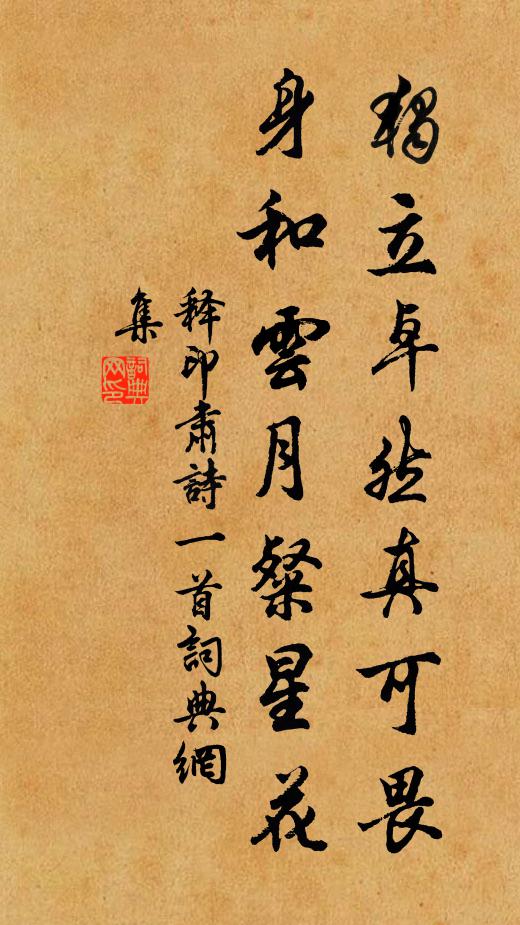 獨立卓然真可畏
身和雲月粲星花
释印肅詩一首詞典網
集
詞典
网印